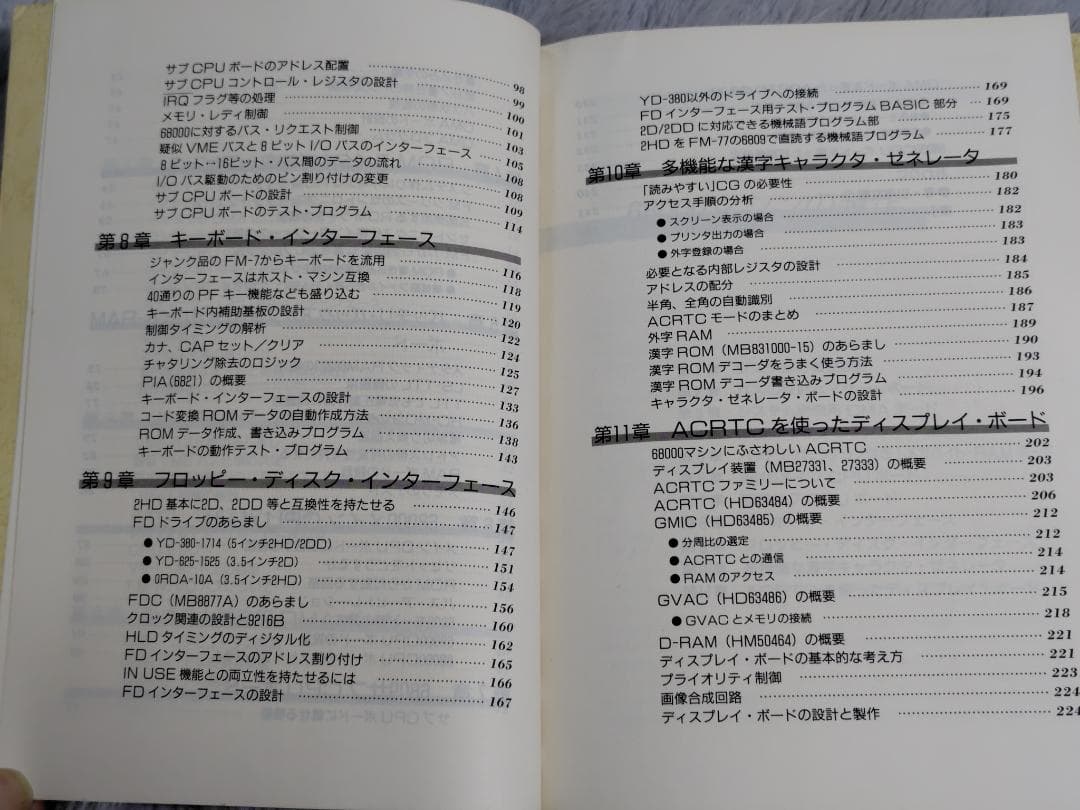 サブCPUボードのアドレス配置 98
サブCPUコントロール・レジスタの設計 99
IRQフラグ等の処理 100
メモリ・レディ制御 101
68000に対するバス・リクエスト制御 103
疑似VMEバスと8ビットI/Oバスのインターフェース 105
8ビット↔16ビット・バス間のデータの流れ 108
I/Oバス駆動のためのピン割り付けの変更 108
サブCPUボードの設計 109
サブCPUボードのテスト・プログラム 114
第8章 キーボード・インターフェース
ジャンク品のFM-7からキーボードを流用 116
インターフェースはホスト・マシン互換 118
40通りのPFキー機能なども盛り込む 119
キーボード内補助基板の設計 120
制御タイミングの解析 122
カナ、CAPセット／クリア 124
チャタリング除去のロジック 125
PIA(6821)の概要 127
キーボード・インターフェースの設計 133
コード変換ROMデータの自動作成方法 136
ROMデータ作成、書き込みプログラム 138
キーボードの動作テスト・プログラム 143
第9章 フロッピー・ディスク・インターフェース
2HD基本に2D、2DD等と互換性を持たせる 146
FDドライブのあらまし 147
●YD-380-1714(5インチ2HD/2DD) 147
●YD-625-1525(3.5インチ2D) 151
●ORDA-10A(3.5インチ2HD) 154
FDC(MB8877A)のあらまし 156
クロック関連の設計と9216B 160
HLDタイミングのディジタル化 162
FDインターフェースのアドレス割り付け 165
IN USE機能との両立性を持たせるには 166
FDインターフェースの設計 167
YD-380以外のドライブへの接続 169
FDインターフェース用テスト・プログラムBASIC部分 169
2D/2DDに対応できる機械語プログラム部 175
2HDをFM-77の6809で直読する機械語プログラム 177
第10章 多機能な漢字キャラクタ・ゼネレータ
「読みやすい」CGの必要性 180
アクセス手順の分析 182
●スクリーン表示の場合 182
●プリンタ出力の場合 183
●外字登録の場合 183
必要となる内部レジスタの設計 184
アドレスの配分 185
半角、全角の自動識別 186
ACRTCモードのまとめ 187
外字RAM 189
漢字ROM(MB831000-15)のあらまし 190
漢字ROMデコーダをうまく使う方法 193
漢字ROMデコーダ書き込みプログラム 194
キャラクタ・ゼネレータ・ボードの設計 196
第11章 ACRTCを使ったディスプレイ・ボード
68000マシンにふさわしいACRTC 202
ディスプレイ装置(MB27331、27333)の概要 203
ACRTCファミリーについて 203
ACRTC(HD63484)の概要 206
GMIC(HD63485)の概要 212
●分周比の選定 212
●ACRTCとの通信 214
●RAMのアクセス 214
GVAC(HD63486)の概要 215
●GVACとメモリの接続 218
D-RAM(HM50464)の概要 221
ディスプレイ・ボードの基本的な考え方 221
プライオリティ制御 223
画像合成回路 224
ディスプレイ・ボードの設計と製作 224